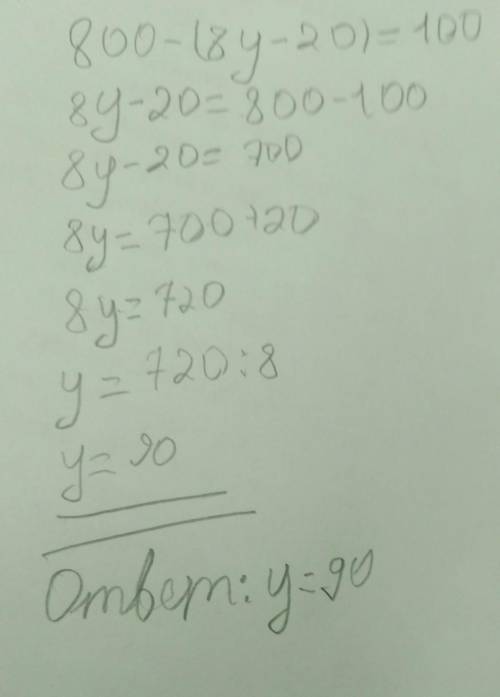 800-(8y-20)=100
8y-20=800-100
8y-20=700
8y=700+20
8y=720
y=720:8
y=90
Ответ: y=90